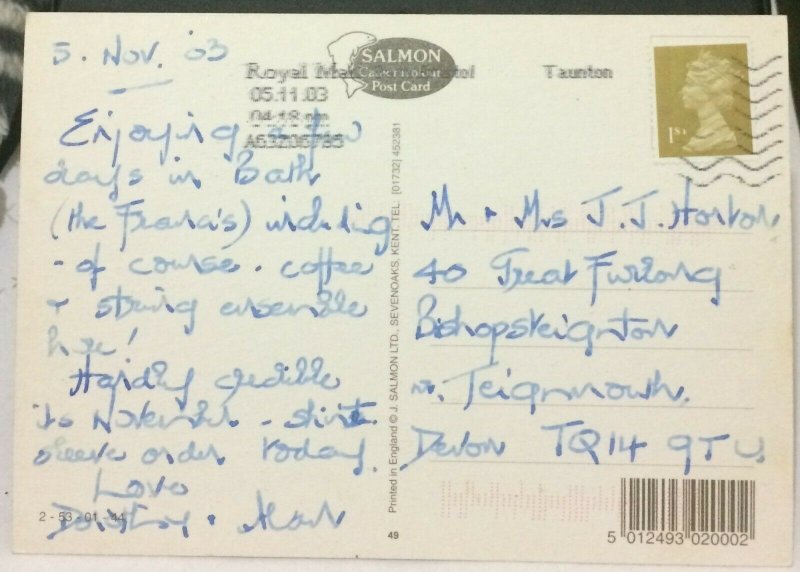 5. Nov. '03
Enjoying a few
days in Bath
(the Francis) including
- of course - coffee
+ string ensemble
here!
Hardly credible
its November - shirt
sleeve order today.
Love
Dorothy +
SALMON
Post Card
Royal Mail
Taunton
05.11.03
04:18 pm
1ST
Mr + Mrs J.J. Horton
40 Great Furlong
Bishopsteignton
nr. Teignmouth.
Devon TQ14 9TU.
Printed in England © J. SALMON LTD., SEVENOAKS, KENT. TEL: [01732] 452381
2 - 53 - 01 - 44
49
5 012493 020002